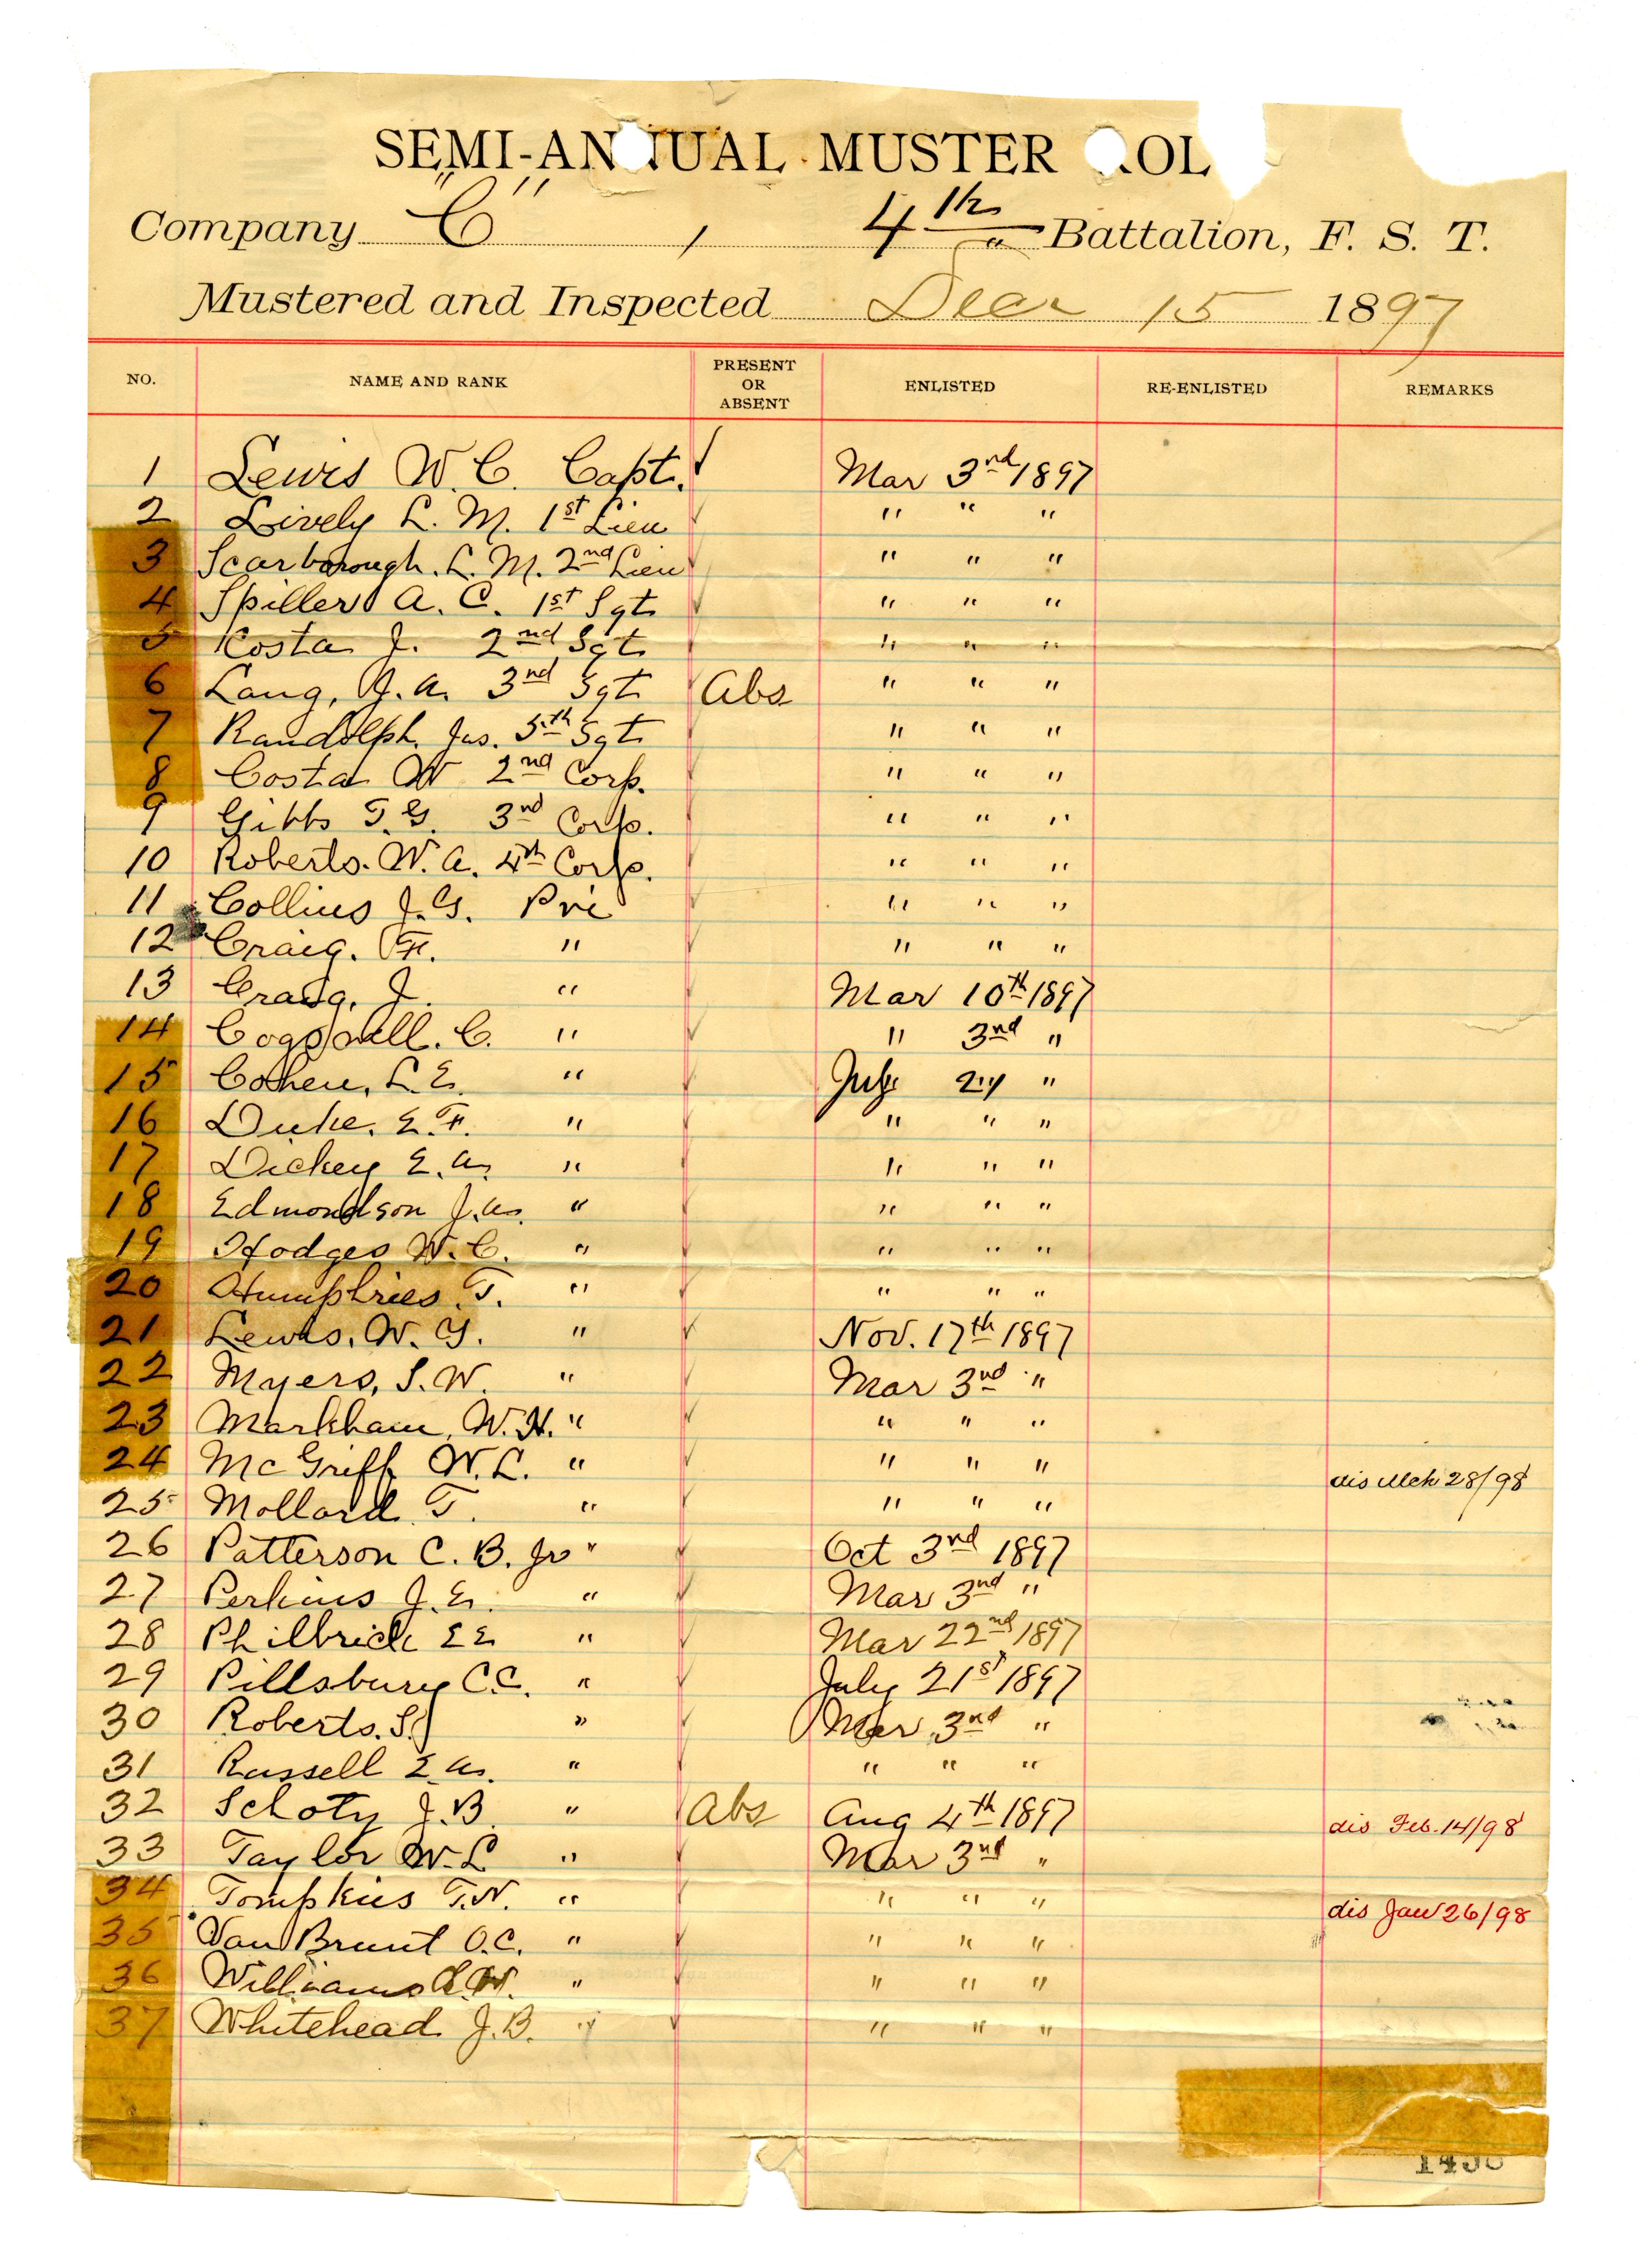 SEMI-ANNUAL MUSTER ROL
Company "C", 4th Battalion, F. S. T.
Mustered and Inspected Decr 15 1897
NO. NAME AND RANK PRESENT OR ABSENT ENLISTED RE-ENLISTED REMARKS
1 Lewis W. C. Capt. ✓ Mar 3rd 1897
2 Lively L. M. 1st Lieu ✓ " " "
3 Scarborough. L. M. 2nd Lieu " " "
4 Spiller A. C. 1st Sgt ✓ " " "
5 Kosta J. 2nd Sgt ✓ " " "
6 Lang, J. A. 3rd Sgt Abs " " "
7 Randolph. Jas. 5th Sgt ✓ " " "
8 Costa W 2nd Corp. ✓ " " "
9 Gibbs T. G. 3rd Corp. ✓ " " "
10 Roberts. W. A. 4th Corp. ✓ " " "
11 Collins J. G. Pri ✓ " " "
12 Craig. F. " ✓ " " "
13 Craig, J. " ✓ Mar 10th 1897
14 Cogswell. C. " ✓ " 3rd "
15 Cohen, L. E. " ✓ July 21 "
16 Duke. E. F. " ✓ " " "
17 Dickey E. A. " ✓ " " "
18 Edmondson J. A. " ✓ " " "
19 Hodges W. C. " ✓ " " "
20 Humphries T. " ✓ " " "
21 Lewis, W. G. " ✓ Nov. 17th 1897
22 Myers, S. W. " ✓ Mar 3rd "
23 Markham, W. H. " ✓ " " "
24 McGriff W. L. " ✓ " " " dis Mch 28/98
25 Mollard T. " ✓ " " "
26 Patterson C. B. Jr " ✓ Oct 3rd 1897
27 Perkins J. E. " ✓ Mar 3rd "
28 Philbrick E E " ✓ Mar 22nd 1897
29 Pillsbury C. C. " ✓ July 21st 1897
30 Roberts. S. " ✓ Mar 3rd "
31 Russell E. A. " ✓ " " "
32 Schoty J. B. " Abs Aug 4th 1897 dis Feb. 14/98
33 Taylor W. L " ✓ Mar 3rd "
34 Tompkies T. N. " ✓ " " " dis Jan 26/98
35 Van Brunt O. C. " ✓ " " "
36 Williams " ✓ " " "
37 Whitehead J. B. " ✓ " " "